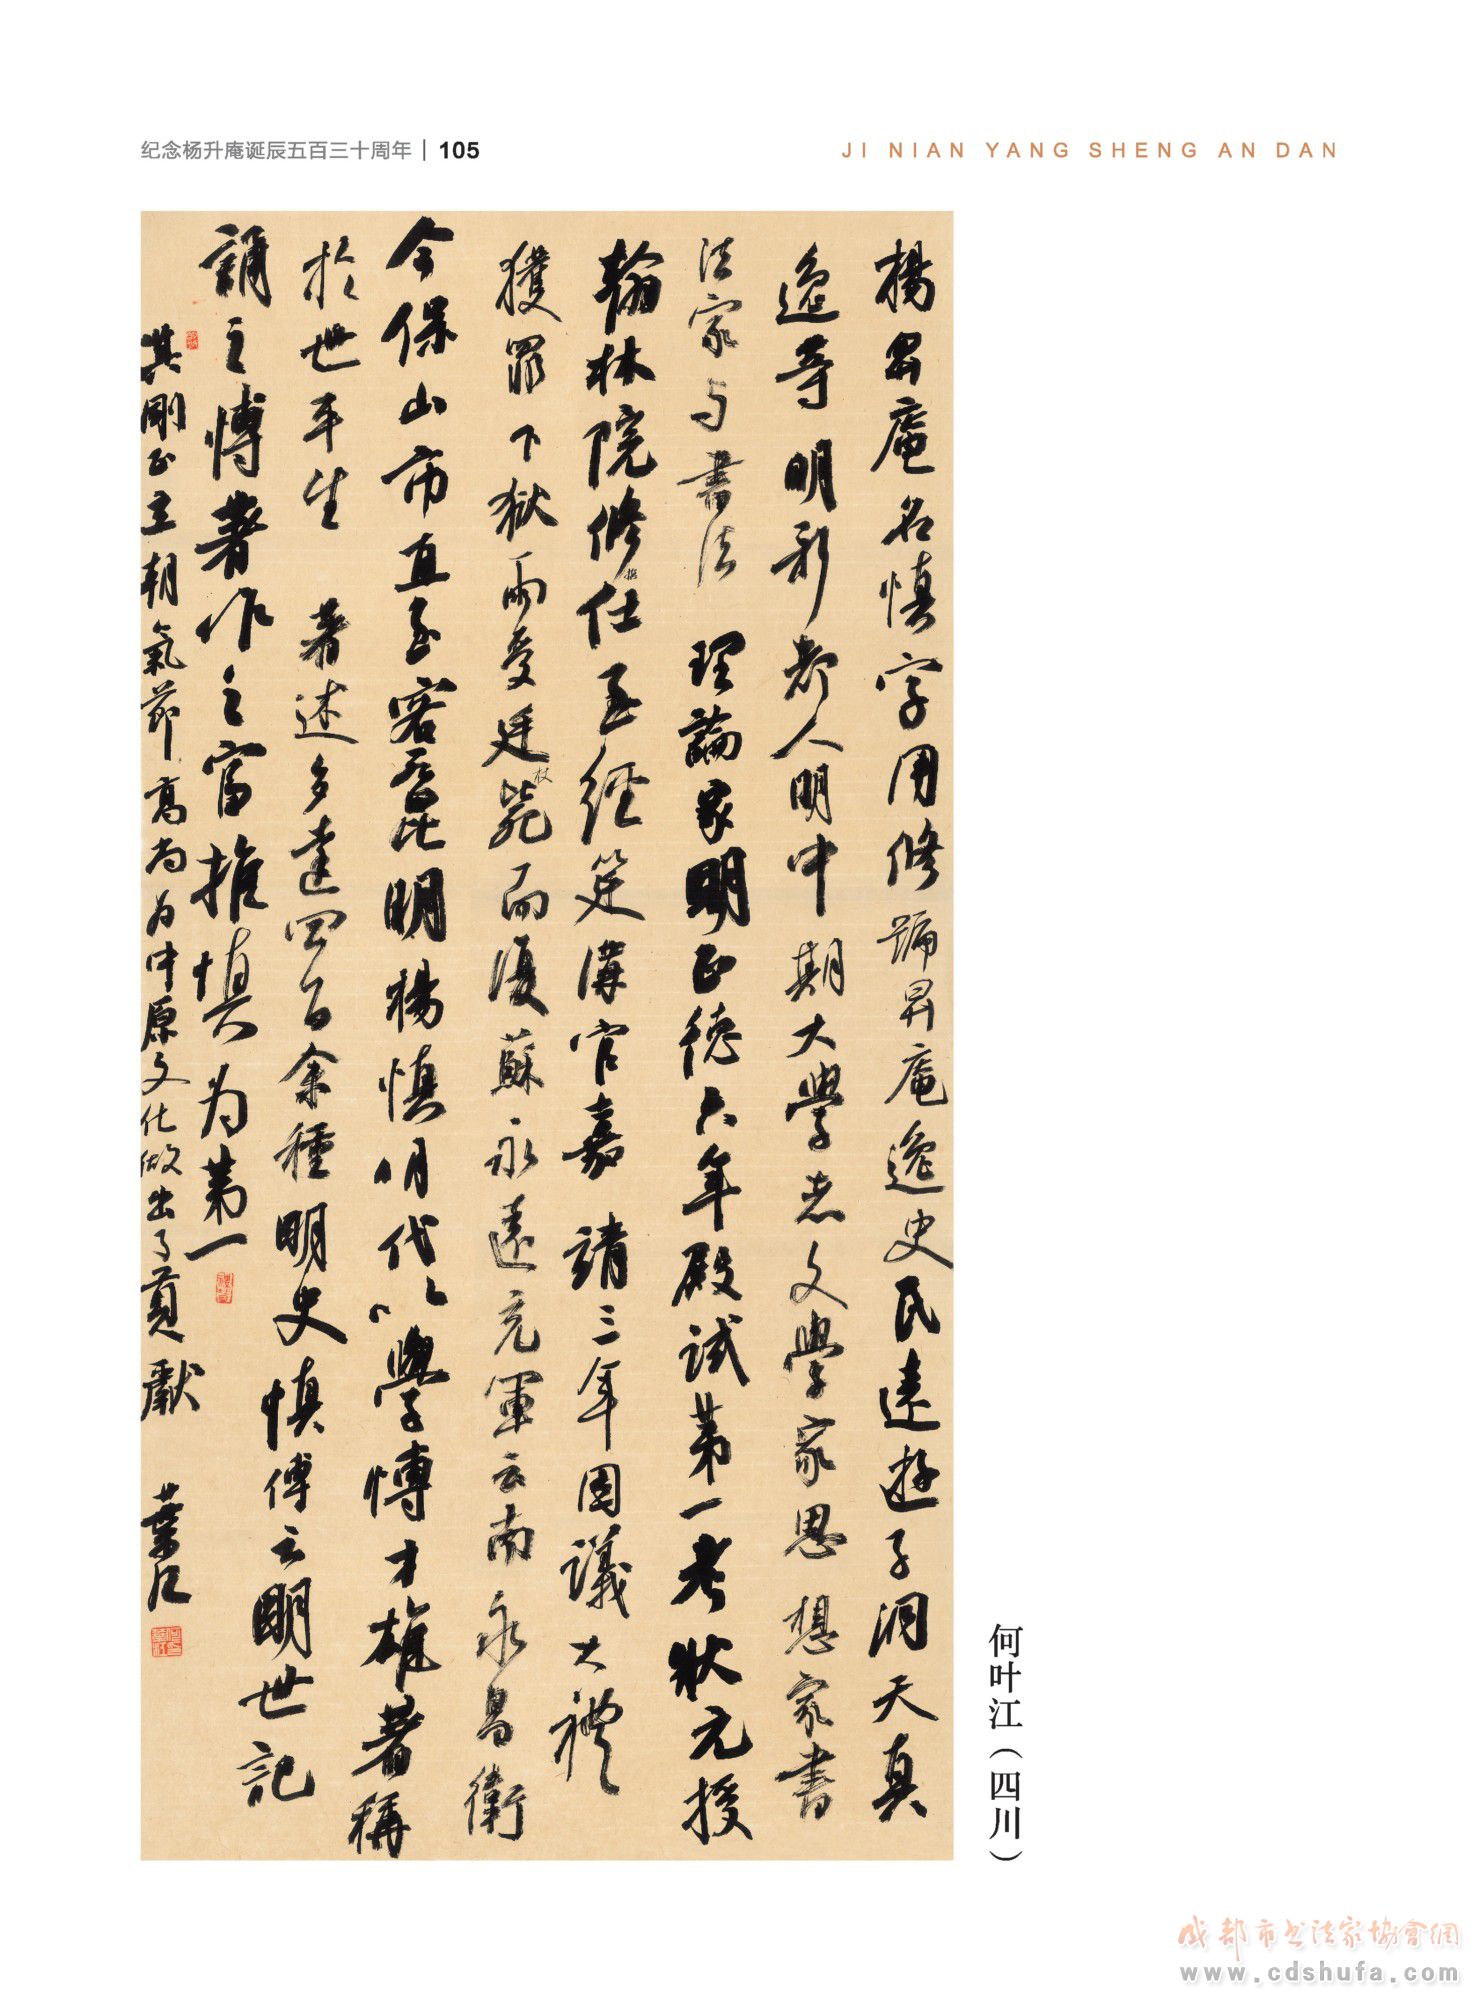 纪念杨升庵诞辰五百三十周年 | 105
JI NIAN YANG SHENG AN DAN
楊昇庵名慎字用修號昇庵逸史民遠遊子洞天真
逸等明新都人明中期大學者文學家思想家書
法家与書法理論家明正德六年殿試第一考狀元授
翰林院修仕至經筵講官嘉靖三年因議大禮
獲罪下獄兩受廷杖斃而復蘇永遠充軍云南永昌衛
今保山市直至客死昆明楊慎明代以學博才雄著稱
於世平生著述多達四百余種明史慎傳云明世記
誦之博著作之富推慎为第一
其剛正立朝氣節高尚为中原文化做出了貢獻 葉江
何叶江（四川）
成都市书法家協會網
www.cdshufa.com